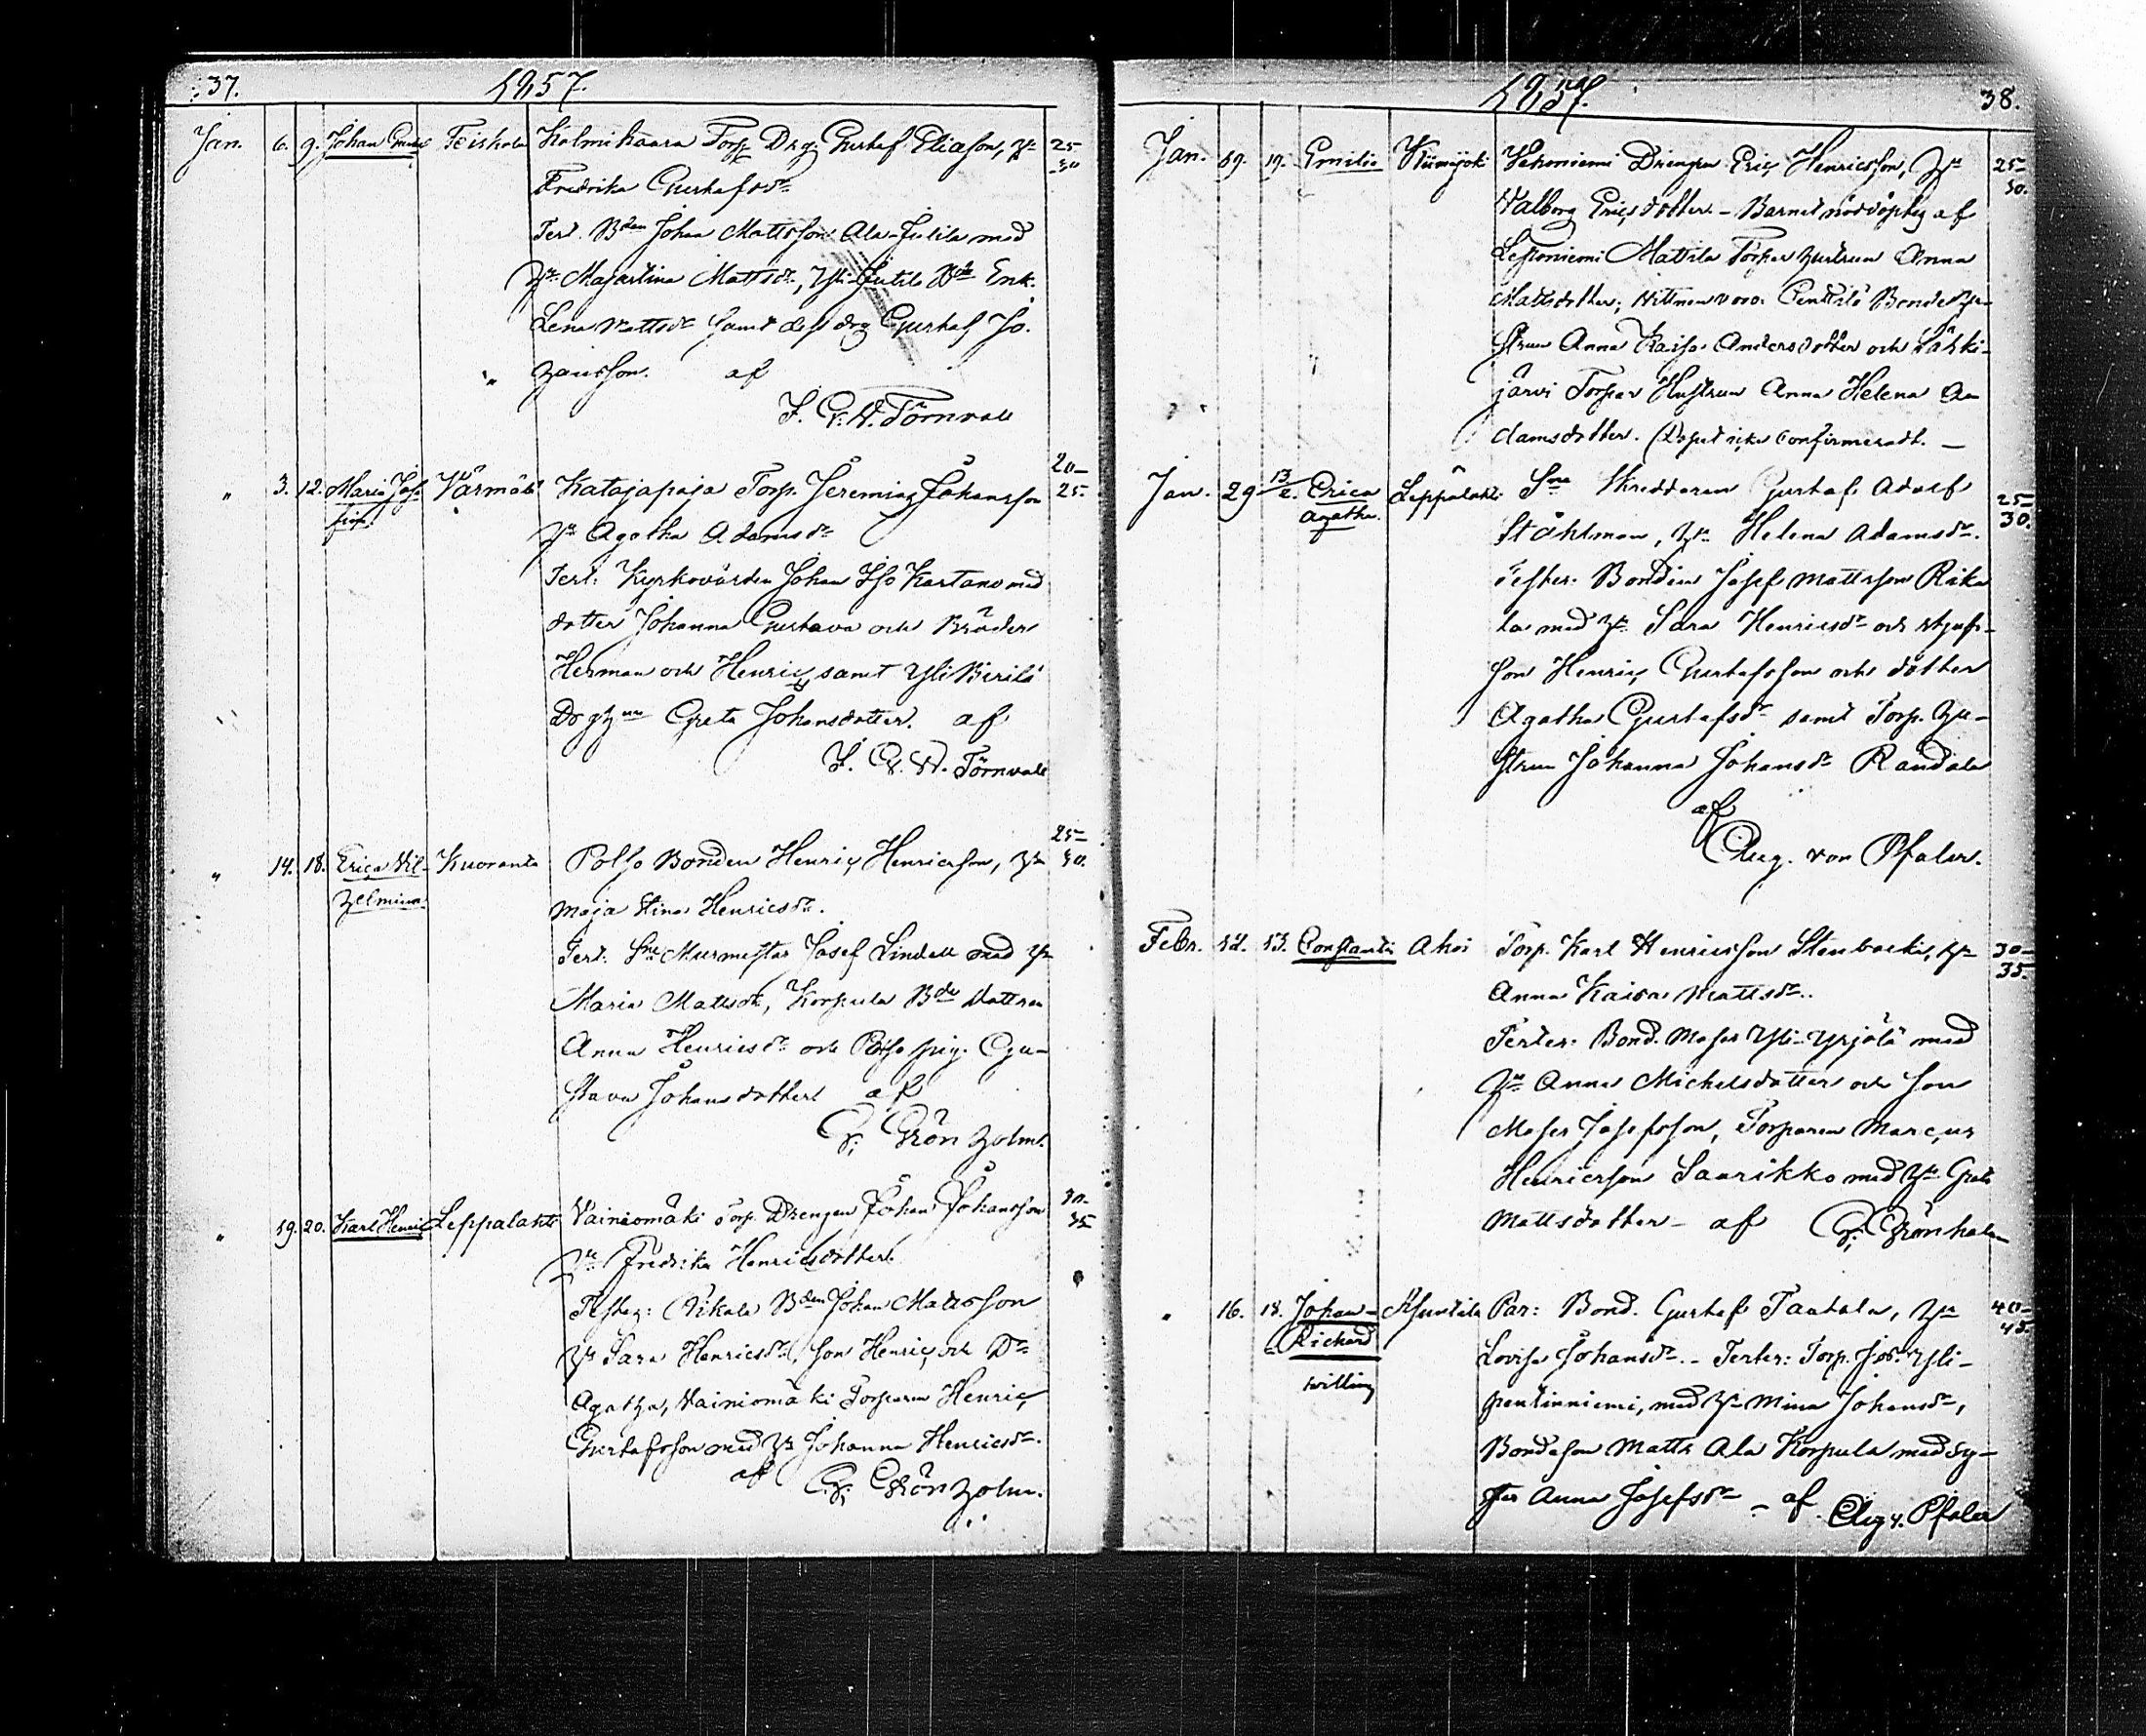 37.
1857.
Jan. 6. 9. Johan Teiskola Kolmihaara Torp. Drg. Gustaf Eliason, hu
25
30
Fredrika Gustafsdr
Test. Bden Johan Mattsson Ala-Jutila med
hu Majastina Mattsdr, Yli-Jutila Bde Enk.
Lena Mattsdr samt dess drg Gustaf Jo-
hansson. af
F. G. W. Törnvall
" 3. 12. Maria Jose-
fina Värmälä Katajapaja Torp. Jeremias Johansson
20
25.
hu Agatha Adamsdr
Test: Kyrkovärden Johan Iso Kartano med
dotter Johanna Gustava och Bröder
Herman och Henric, samt Yli Birilä
Drghun Greta Johansdotter. af
F. G. W. Törnvall
" 14. 18. Erica Vil-
helmina Kuoranta Polso Bonden Henric Henricsson, hu
25
30.
Maja Stina Henricsdr.
Test: Sne Murmestar Josef Lindell med hu
Maria Mattsdr, Korpula Bde Dottren
Anna Henricsdr och Polso pig. Gu-
stava Johansdotter af
G. Grönholm.
" 19. 20. Karl Henric Leppälahti Vainiomäki Torp. Drengen Johan Johansson
30
35
hu Fredrika Henricsdotter
Testes: Rikala Bden Johan Mattsson
hu Sara Henricsdr, son Henric och Dr
Agatha, Vainiomäki Torparen Henric
Gustafsson med hu Johanna Henricsdr.
af G. Grönholm.
1857.
38.
Jan. 19. 19. Emilia Kiimajoki Drengen Eric Henricsson, hu
25
30.
Valborg Ericsdotter – Barnet nöddöptes af
Leponiemi Mattila Torpar hustrun Anna
Mattsdotter; Vittnen voro: Penttilä Bonde hu-
strun Anna Kaisa Andersdotter och Särki-
järvi Torpar Hustrun Anna Helena A-
damsdotter. (Dopet icke confirmeradt. –
Jan. 29 13/2. Erica
Agatha. Leppälahti Sne Skreddaren Gustaf Adolf
25
30.
Ståhlman, hu Helena Adamsdr.
Testes: Bonden Josef Mattsson Rika
la med hu Sara Henricsdr och styf-
son Henric Gustafsson och dotter
Agatha Gustafsdr samt Torp. hu-
strun Johanna Johansdr Randala
af
Aug. von Pfaler.
Febr. 12. 13. Constantin Ahos Torp. Karl Henricsson Stenbacki, hu
30
35.
Anna Kaisa Mattsdr.
Testes: Bond. Moses Yli-Yrjölä med
hu Anna Michelsdotter och son
Moses Josefsson, Torparen Marcus
Henricsson Saarikko med hu Greta
Mattsdotter – af G. Grönholm
" 16. 18. Johan
Rickard
tvilling Asuntila Par: Bond. Gustaf Tantala, hu
40
45.
Lovisa Johansdr. – Testes: Torp. Jos. Yli-
pentinniemi, med hu Mina Johansdr,
Bondeson Matts Ala Korpula med sy-
ster Anna Josefsdr – af Aug. v. Pfaler